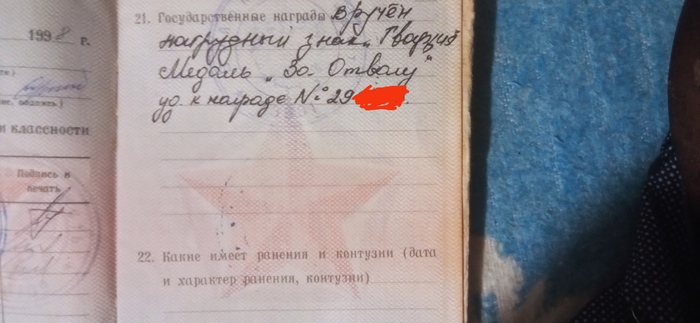 1998 г.
и классности
Подпись и
печать
21. Государственные награды вручён
нагрудный знак „Гвардия"
Медаль „За Отвагу"
уд. к награде № 29
22. Какие имеет ранения и контузии (дата
и характер ранения, контузии)